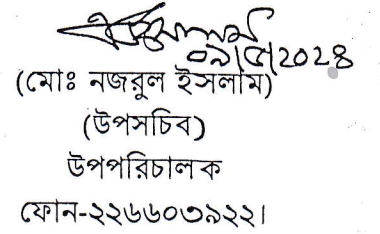 ০৯/৫/2024
(মোঃ নজরুল ইসলাম)
(উপসচিব)
উপপরিচালক
ফোন-২২৬৬০৩৯২২।